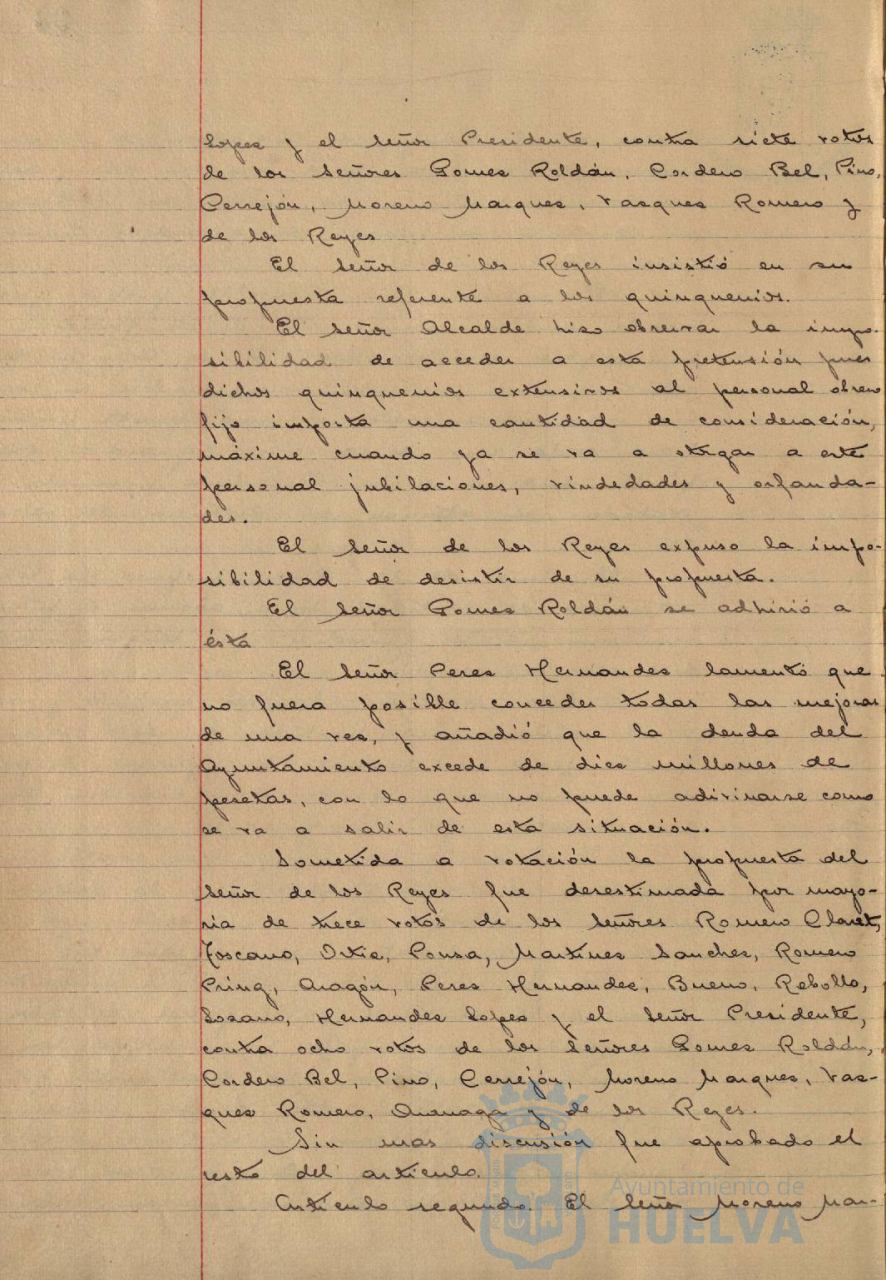 Lopez y el Señor Presidente, contra siete votos
de los Señores Gomez Roldán, Cordero Bel, Pino,
Cerrejón, Moreno Marquez, Vazquez Romero y
de los Reyes
El Señor de los Reyes insistió en su
propuesta referente a los quinquenios.
El Señor Alcalde hizo observar la impo-
sibilidad de acceder a esta pretensión pues
dichos quinquenios extensivos al personal obrero
fijo importa una cantidad de consideración,
máxime cuando ya se va a otorgar a este
personal jubilaciones, viudedades y orfanda-
des.
El Señor de los Reyes expuso la impo-
sibilidad de desistir de su propuesta.
El Señor Gomez Roldán se adhirió a
ésta
El Señor Perez Hernandez lamentó que
no fuera posible conceder todas las mejoras
de una vez, y añadió que la deuda del
Ayuntamiento excede de diez millones de
pesetas, con lo que no puede adivinarse como
se va a salir de esta situación.
Sometida a votación la propuesta del
Señor de los Reyes fue desestimada por mayo-
ria de trece votos de los Señores Romero Claret,
Toscano, Ortiz, Ponsa, Martinez Sanchez, Romero
Pring, Aragón, Perez Hernandez, Bueno, Rebollo,
Lozano, Hernandez Lopez y el Señor Presidente,
contra ocho votos de los Señores Gomez Roldán,
Cordero Bel, Pino, Cerrejón, Moreno Marquez, Vaz-
quez Romero, Quinaga y de los Reyes.
Sin mas discusión fue aprobado el
resto del articulo.
Articulo segundo. El Señor Moreno Mar-
Ayuntamiento de
HUELVA